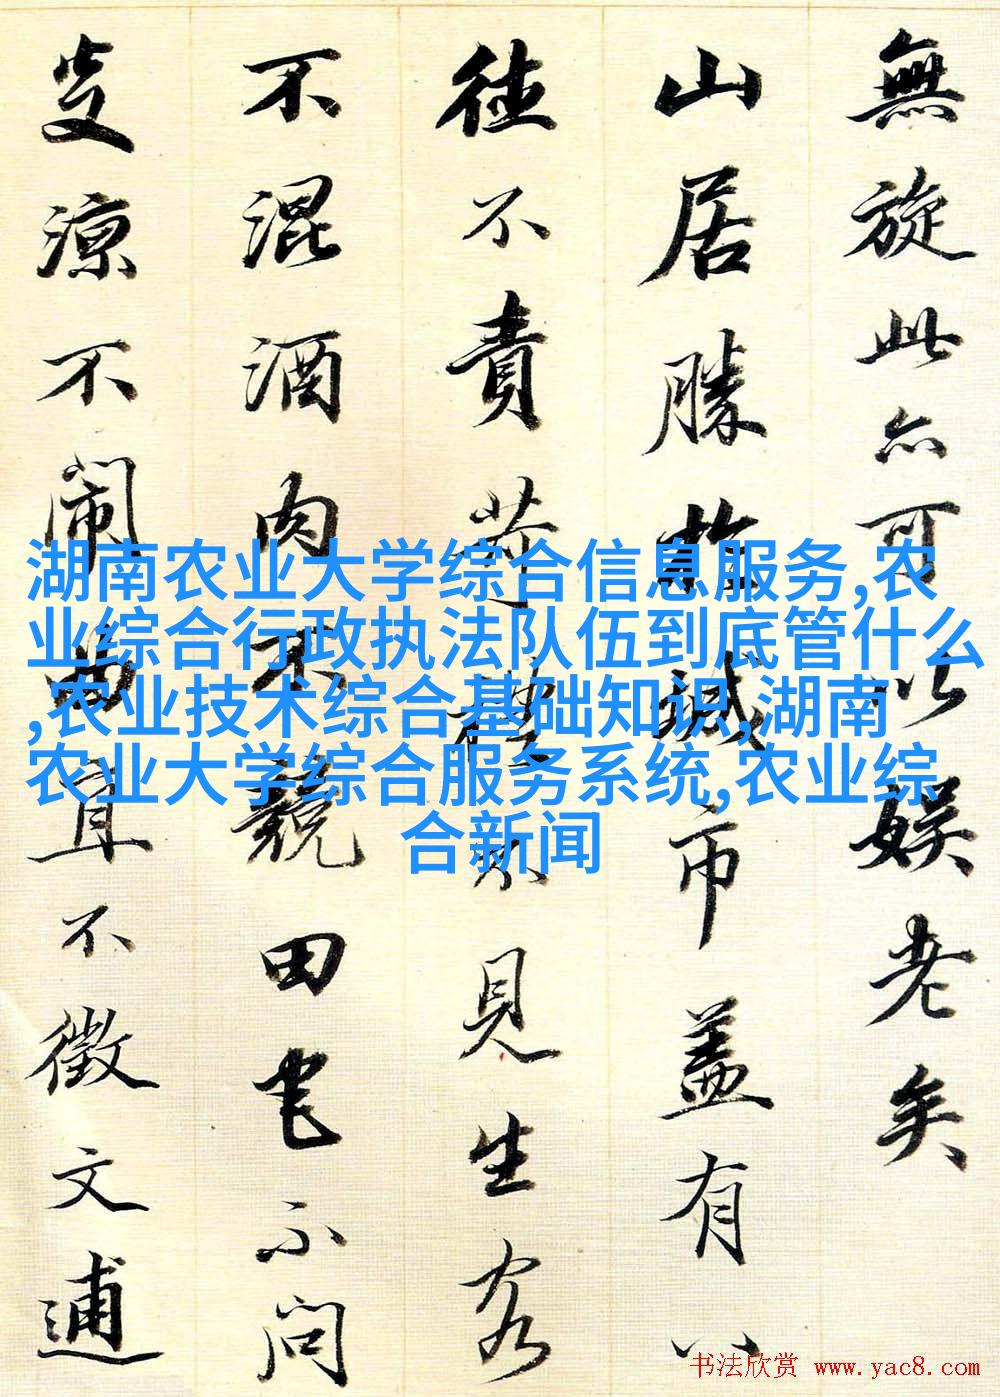 無旋此亦可以娱老矣
山居勝於城市盖有八
徳不責苛禮不見生客
不混酒肉不競田宅不問
炎凉不闹曲直不徵文逋
湖南农业大学综合信息服务,农
业综合行政执法队伍到底管什么
,农业技术综合基础知识,湖南
农业大学综合服务系统,农业综
合新闻
书法欣赏 www.yac8.com